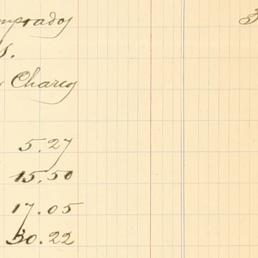 mprados
s.
Charco
5.27
15.50
17.05
30.22